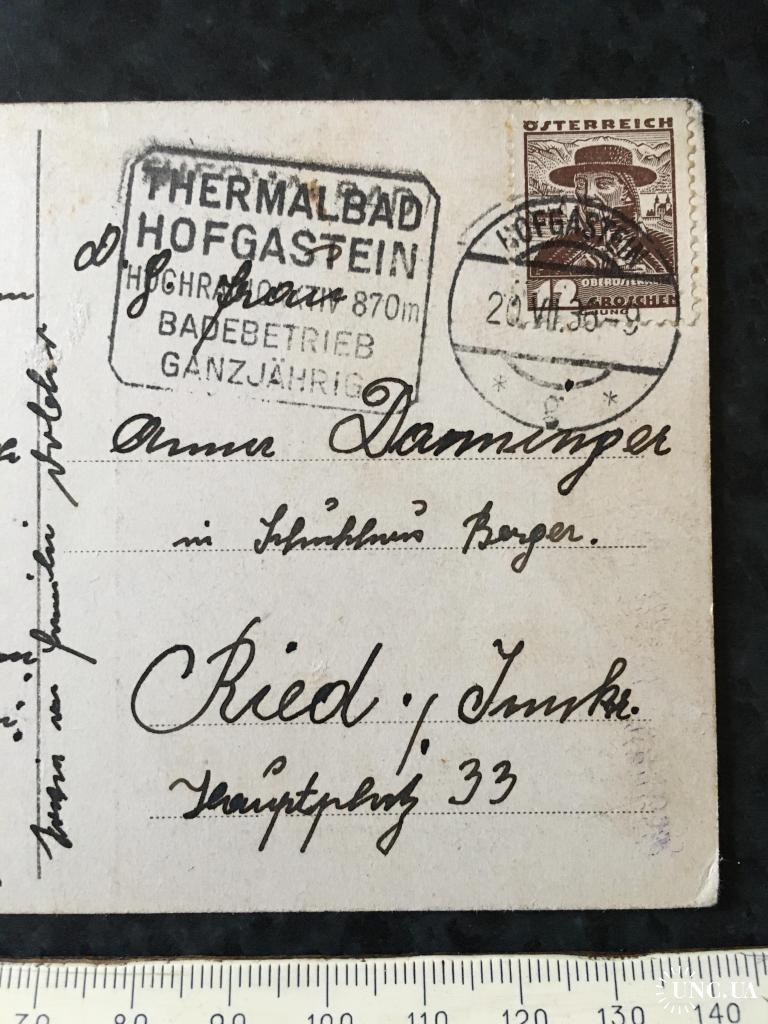 ÖSTERREICH
12 GROSCHEN
HOFGASTEIN
20.VII.36-9
* g *
THERMALBAD
HOFGASTEIN
HOCHRADIOAKTIV 870m
BADEBETRIEB
GANZJÄHRIG
Frau
Anna Danninger
in Schuhhaus Berger.
Ried i/ Innkr.
Hauptplatz 33
70 80 90 100 110 120 130 140
UNC.UA